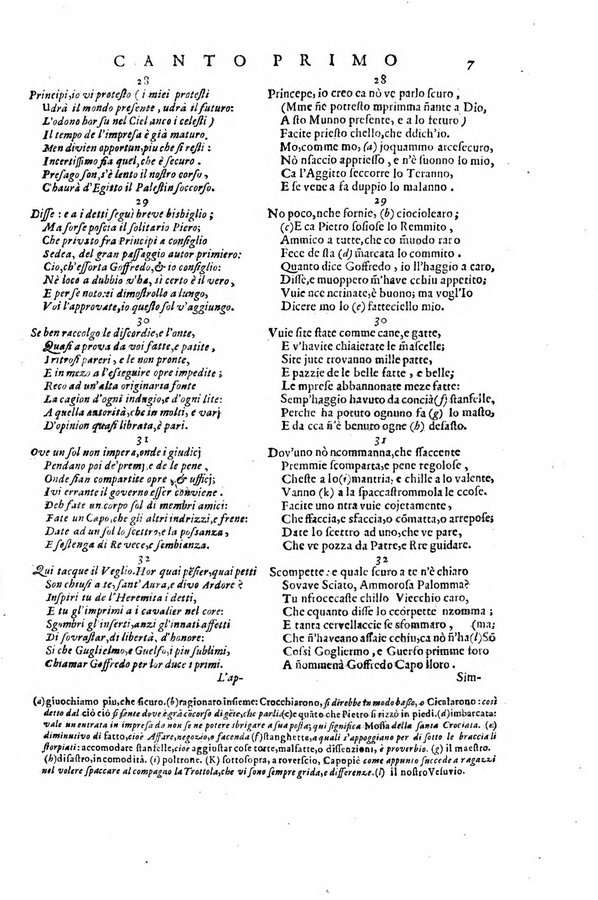 CANTO PRIMO 7
28
Principi, io vi protesto ( i miei protesti
Udrà il mondo presente, udrà il futuro:
L'odono hor su nel Ciel anco i celesti )
Il tempo de l'impresa è già maturo.
Men divien opportun, piu che si resti:
Incertissimo fia quel, che è securo.
Presago son, s'è lento il nostro corso,
C'haurà d'Egitto il Palestin soccorso.
29
Disse: e a i detti seguì breve bisbiglio;
Ma sorse poscia il solitario Piero;
Che privato fra Principi a consiglio
Sedea, del gran passaggio autor primiero:
Ciò, ch'essorta Goffredo, & io consiglio:
Nè loco a dubbio v'ha, si certo è il vero,
E per se noto: ei dimostrollo a lungo,
Voi l'approvate, io questo sol v'aggiungo.
30
Se ben raccolgo le discordie, e l'onte,
Quasi a prova da voi fatte, e patite,
I ritrosi pareri, e le non pronte,
E in mezo a l'esseguire opre impedite;
Reco ad un'alta originaria fonte
La cagion d'ogni indugio, e d'ogni lite:
A quella autorità, che in molti, e varj
D'opinion quasi librata, è pari.
31
Ove un sol non impera, onde i giudicj
Pendano poi de' premj, e de le pene,
Onde sian compartite opre, & ufficj;
Ivi errante il governo esser conviene.
Deh fate un corpo sol di membri amici:
Fate un Capo, che gli altri indrizzi, e frene:
Date ad un sol lo scettro, e la possanza,
E sostenga di Re vece, e sembianza.
32
Qui tacque il Veglio. Hor quai pẽsier, quai petti
Son chiusi a te, sant'Aura, e divo Ardore?
Inspiri tu de l'Heremita i detti,
E tu gl'imprimi a i cavalier nel core:
Sgombri gl'inserti, anzi gl'innati affetti
Di sovrastar, di libertà, d'honore:
Si che Guglielmo, e Guelfo, i piu sublimi,
Chiamar Goffredo per lor duce i primi.
L'ap-
28
Princepe, io creo ca nò ve parlo scuro,
(Mme ñe potresto mprimma ñante a Dio,
A sto Munno presente, e a lo feturo)
Facite priesto chello, che ddich'io.
Mo, comme mo, (a) joquammo arcesecuro,
Nò nsaccio appriesso, e n'è suonno lo mio,
Ca l'Aggitto seccorre lo Teranno,
E se vene a fa duppio lo malanno.
29
No poco, nche fornie, (b) ciociolearo;
(c) E ca Pietro sosiose lo Remmito,
Ammico a tutte, ch'a co m̃uodo raro
Fece de sta (d) marcata lo commito.
Quanto dice Goffredo, io ll'haggio a caro,
Disse, e muoppero m'have cchiu appietito;
Vuie nce nterrite, è buono; ma vogl'Io
Dicere mo lo (e) fatteciello mio.
30
Vuie site state comme cane, e gatte,
E v'havite chiaietate le mascelle;
Site jute trovanno mille patte,
E pazzie de le belle fatte, e belle;
Le mprese abbannonate meze fatte:
Semp'haggio havuto da concià (f) stanfelle,
Perche ha potuto ognuno fa (g) lo masto,
E da cca ñ'è benuto ogne (h) desasto.
31
Dov'uno nò ncommanna, che sfaccente
Premmie scomparta, e pene regolose,
Cheste a lo (i) mantria; e chille a lo valente,
Vanno (k) a la spaccastrommola le ccose.
Facite uno ntra vuie cojetamente,
Che sfaccia, e sfaccia, o cõmatta, o arrepose;
Date lo scettro ad uno, che ve pare,
Che ve pozza da Patre, e Rre guidare.
32
Scompette: e quale scuro a te n'è chiaro
Sovave Sciato, Ammorosa Palomma?
Tu nfrocecaste chillo Viecchio caro,
Che equanto disse lo ccòrpette nzomma;
E tanta cervellaccie se sformmaro, (ma;
Che ñ'haveano assaie cchiu, ca nò ñ'ha (l) Sõ
Cossì Gogliermo, e Guerfo priesto furo
A ñommenà Goffredo Capo lloro.
Sim-
(a) giuochiamo piu, che sicuro. (b) ragionaro insieme: Crocchiarono, si direbbe in modo basso, o Cicalarono: così
detto dal ciò ciò si sente dove è grã cõcorso di gẽte, che parli. (c) e quãto che Pietro si rizzò in piedi. (d) imbarcata:
vale un entrata in impresa da non se ne potere sbrigare a sua posta; qui significa Mossa della santa Crociata. (e)
diminutivo di fatto, cioè Affare, negozio, o faccenda (f) stanghette, a quali s'appoggiano per di sotto le braccia li
storpiati: accomodare stanfelle, cioe aggiustar cose torte, malfatte, o dissenzioni, è proverbio. (g) il maestro.
(h) disastro, incomodità. (i) poltrone. (K) sottosopra, a roverscio, Capopiè come appunto succede a ragazzi
nel volere spaccare al compagno la Trottola, che vi sono sempre grida, e differenze. (l) il nostro Vesuvio.